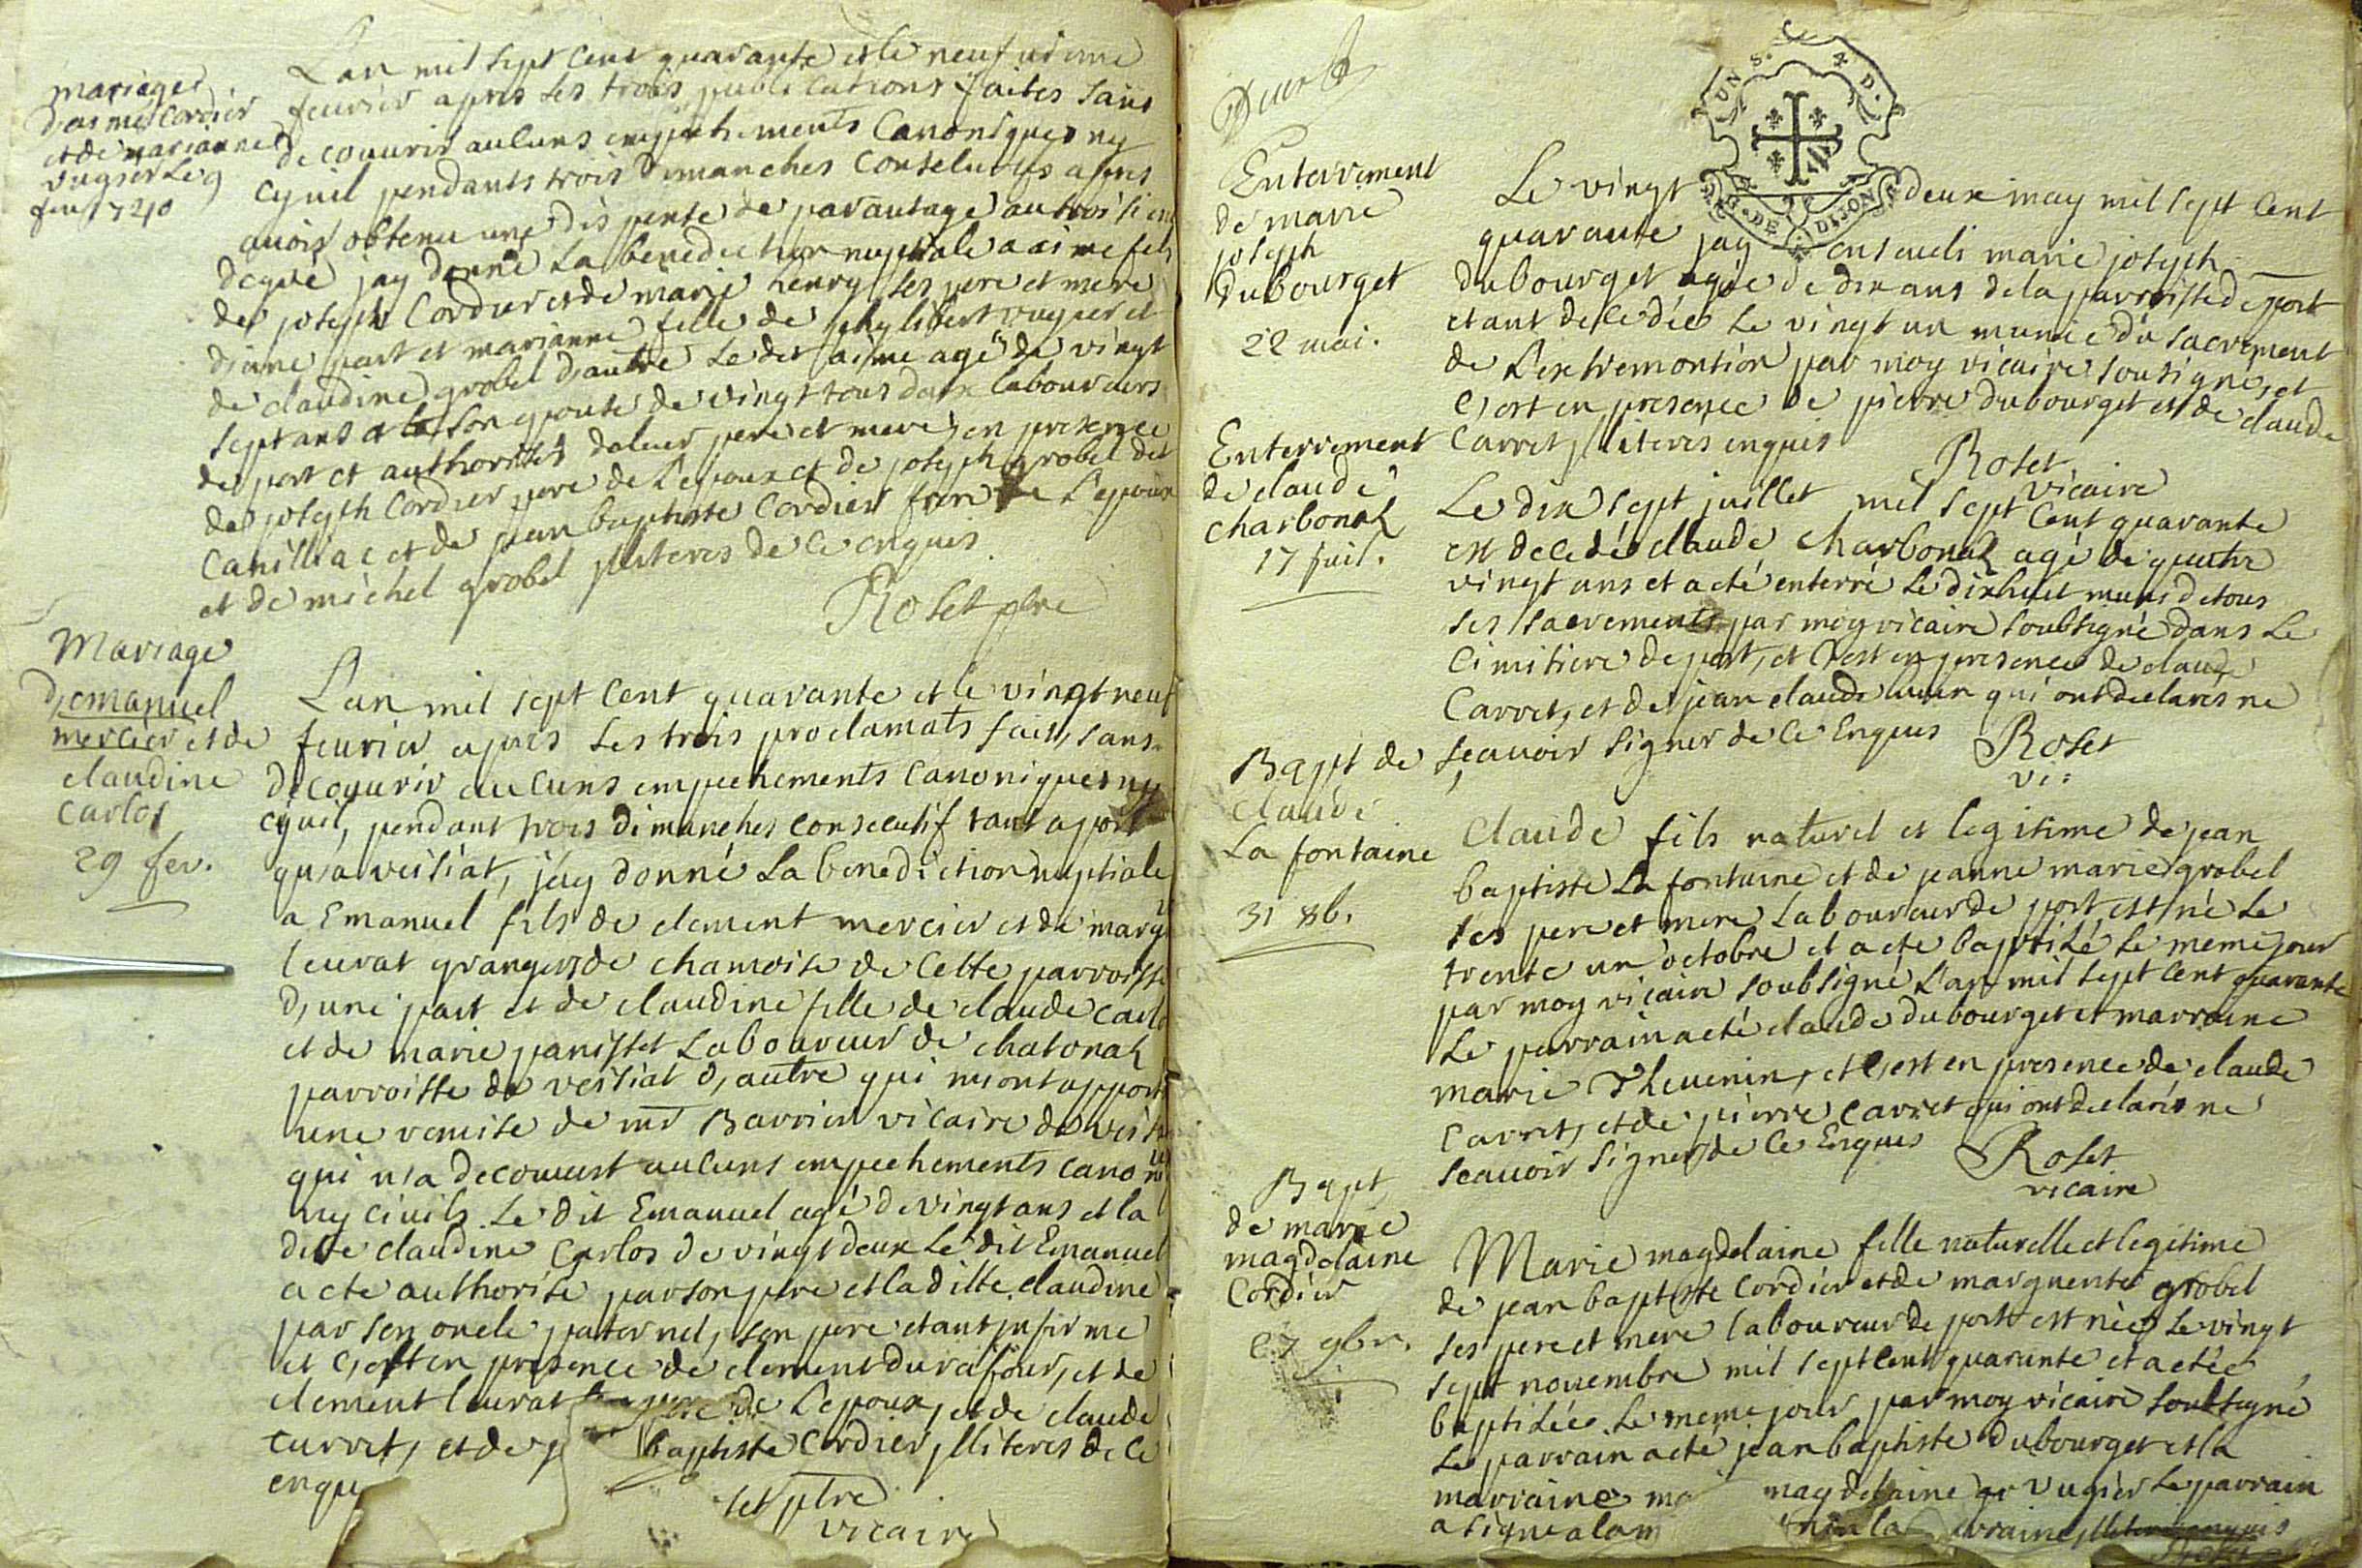 mariage
d'aimé Cordier
et de marianne
vugier le 9
feu 1740
L'an mil sept cent quarante et le neufvieme
feurier apres les trois publications faites sans
decouurir aucuns empechements Canoniques ny
cyuil pendants trois dimanches Consecutifs apres
auoir obtenu une dispense de
jay donné La benediction nuptiale a aime fils
de joseph Cordier et de marie henry ses pere et mere
d'une part et marianne fille de phylibert vugier et
de claudine grobel d'autre Le dit aime agé de vingt
sept ans son epouse de vingt tous deux laboureurs
de port et authorisés de leur pere et mere en presence
de joseph Cordier pere de L'epoux et de joseph grobel dit
Canilliac et de jean baptiste Cordier frere de L'epoux
et de michel grobel jlliteres de ce enquis
Roset ptre
Mariage
d'emanuel
mercier et de
claudine
carlos
29 fev.
L'an mil sept Cent quarante et le vingt neuf
feurier apres les trois proclamats fait, sans
decouurir aucuns empechements canoniques ny
cyuil, pendant trois dimanches consecutif tant a port
qu'a veisiat, j'ay donné La benediction nuptiale
a Emanuel fils de clement mercier et de marg
leurat granger de chamoise de Cette parroisse
d'une part et de claudine fille de claude carlo
et de marie panisset Laboureur de chatonax
parroisse de veisiat d'autre qui m'ont apport
une remise de mr Barrier vicaire de veisiat
qui n'a decouuert aucuns empechements cano
ny ciuils. Le dit Emanuel agé de vingt ans et la
ditte claudine Carlos de vingt deux Le dit Emanuel
a ete authorise par son pere et la ditte claudine
par son oncle paternel, son pere etant jnfirme
et c'est en presence de clement durafour, et de
clement leurat de L'epoux, et de claude
curret, et de j baptiste Cordier, jlliteres de ce
enqu
set ptre
vicaire
Deux
UN S. 4 D.
G. DE DIJON
Enterrement
de marie
joseph
Dubourget
22 mai.
Le vingt deux may mil sept Cent
quarante jay enseueli marie joseph
dubourget agée de dix ans de la parroisse de port
etant decedée Le vingt un munie du sacrement
de L'extremontion par moy vicaire sousigné, et
c'est en presence de pierre dubourget et de claude
Carret, jliteres enquis
Roset
vicaire
Enterrement
de claude
charbonax
17 juil.
Le dix sept juillet mil sept Cent quarante
est decedé claude charbonax agé de quatre
vingt ans et a eté enterré Le dixhuit munis de tous
ses sacrements par moy vicaire soubsigné dans Le
Cimitiere de port, et c'est en presence de claude
Carret, et de jean claude qui ont declarés ne
sçeauoir signer de ce Enquis
Roset
vic
Bapt de
claude
La fontaine
31 8b.
Claude fils naturel et legitime de jean
baptiste La fontaine et de jeanne marie grobel
ses pere et mere Laboureur de port, est né Le
trente un octobre et a ete baptisé Le meme jour
par moy vicaire soubsigné L'an mil sept cent quarante
Le parrain a eté claude dubourget et marraine
marie Theuenin, et c'est en presence de claude
Carret, et de pierre Carret qui ont declarés ne
sceauoir signer de ce Enquis
Roset
vicaire
Bapt
de marie
magdelaine
Cordier
27 9br.
Marie magdelaine fille naturelle et legitime
de jean baptiste Cordier et de marguerite grobel
ses pere et mere laboureur de port est née Le vingt
sept nouembre mil sept cent quarante et a etée
baptisée Le meme jour par moy vicaire soubsigné
Le parrain a eté jean baptiste dubourget et la
marraine ma magdelaine vugier Le parrain
a signe a la m non la rraine